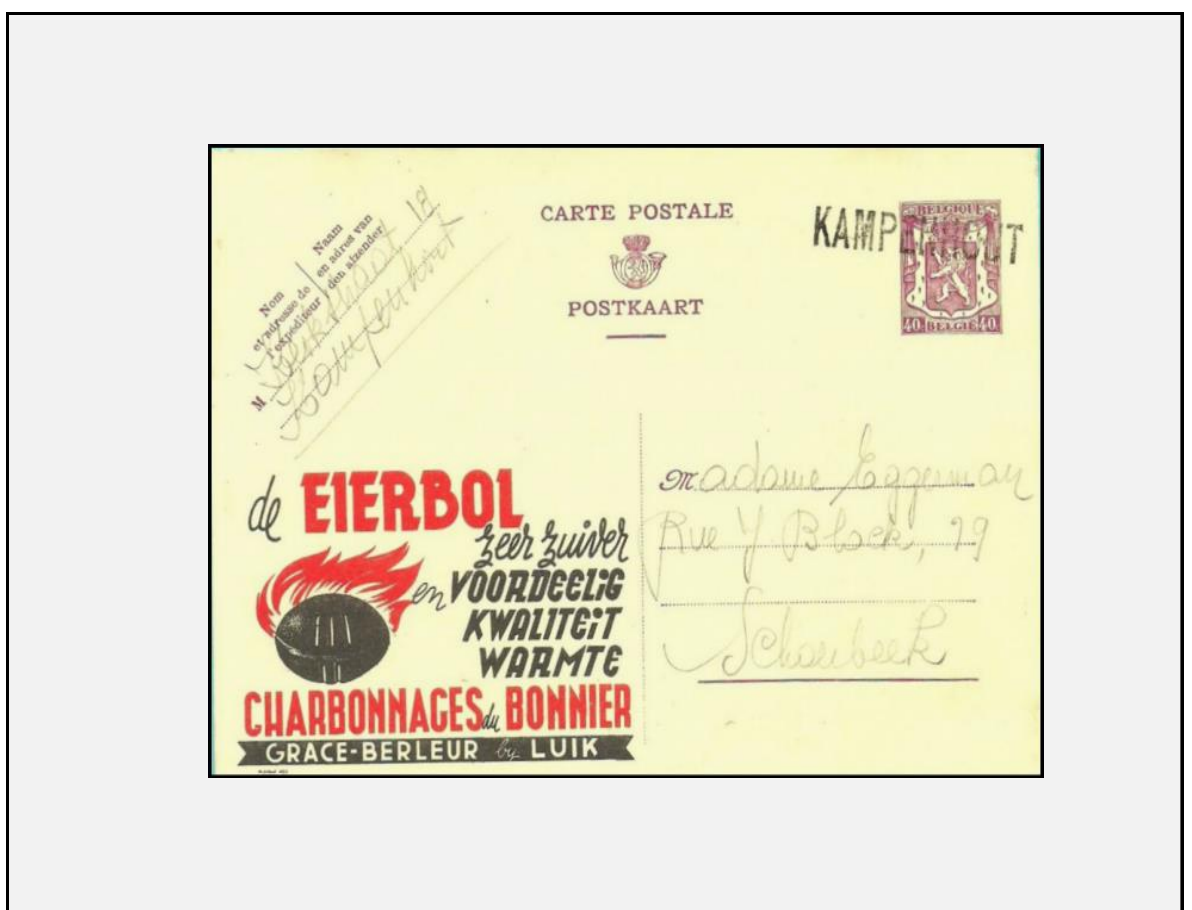 Nom
et adresse de
l'expéditeur
Naam
en adres van
den afzender
M
18
Kampenhout
CARTE POSTALE
POSTKAART
KAMPENHOUT
BELGIQUE
40 BELGIË 40
de EIERBOL
zeer zuiver
en VOORDEELIG
KWALITEIT
WARMTE
CHARBONNAGES du BONNIER
GRACE-BERLEUR by LUIK
Madame Eggerman
Rue J. Block, 19
Schaerbeek